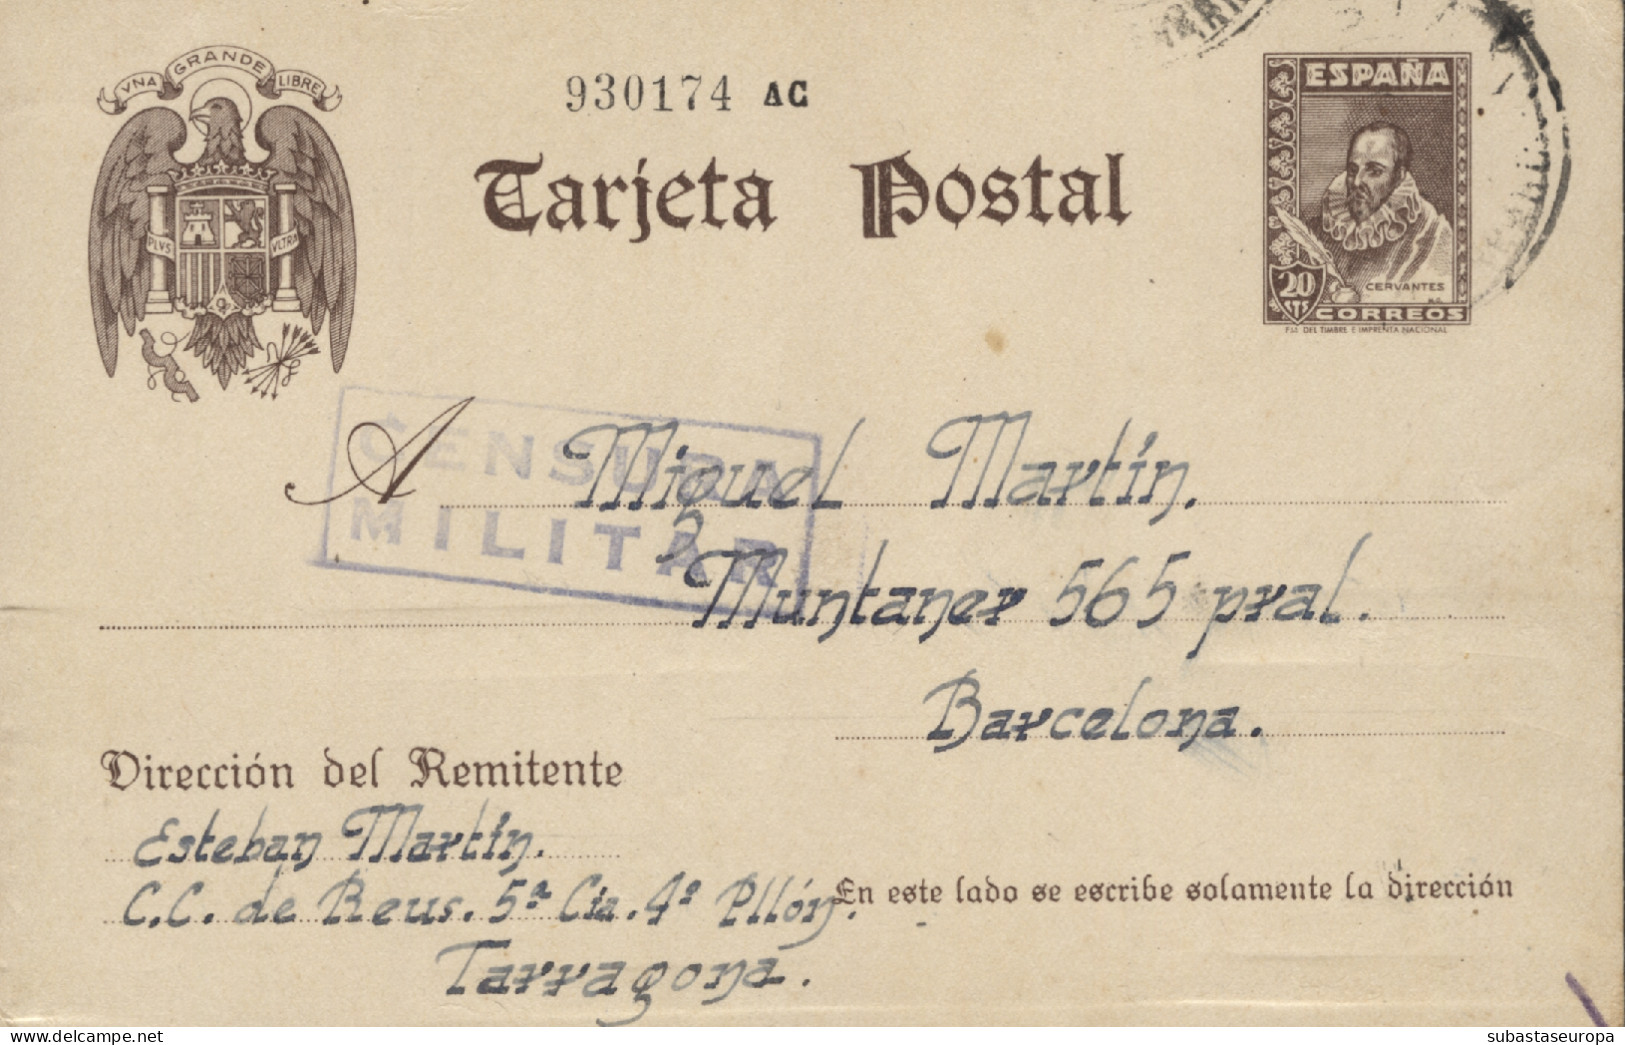 VNA GRANDE LIBRE
PLVS VLTRA
930174 AC
Tarjeta Postal
ESPAÑA
CERVANTES
20 CTS
CORREOS
DEL TIMBRE E IMPRENTA NACIONAL
CENSURA
MILITAR
A Miguel Martín.
Muntaner 565 pral.
Barcelona.
Dirección del Remitente
Esteban Martín.
C.C. de Reus. 5ª Cia. 4º Pllón.
Tarragona.
En este lado se escribe solamente la dirección
subastaseuropa